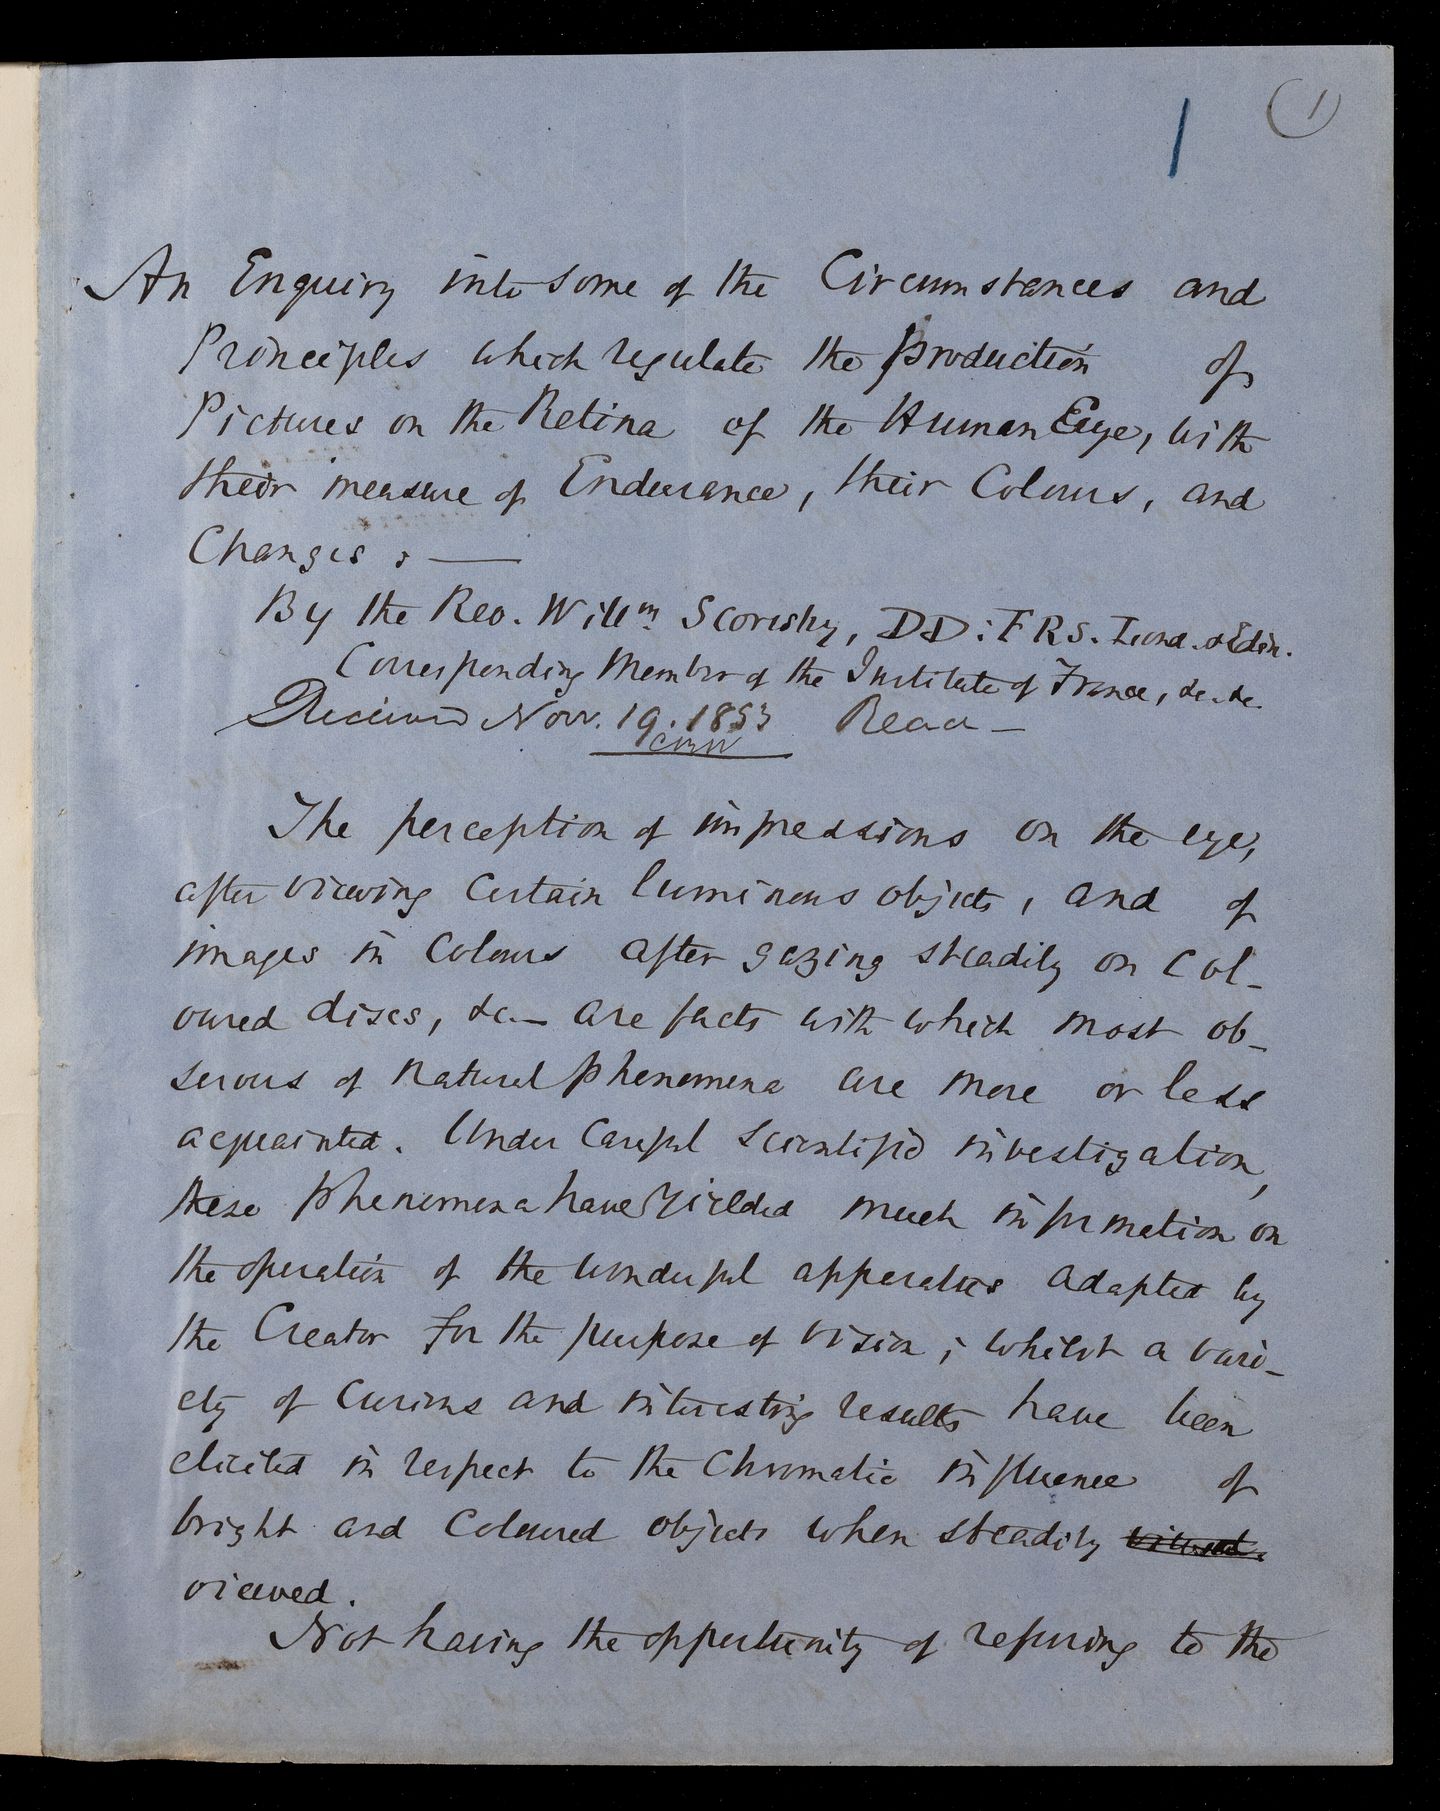 1
(1)
An Enquiry into some of the Circumstances and
Principles which regulate the production of
Pictures on the Retina of the Human Eye, with
their measure of Endurance, their Colours, and
Changes :—
By the Rev. Willm Scoresby, DD : F R S. Lond. & Edin.
Corresponding Member of the Institute of France, &c. &c.
Received Nov. 19. 1853 Read —
The perception of impressions on the eye,
after viewing certain luminous objects, and of
images in colours after gazing steadily on col-
oured discs, &c.— are facts with which most ob-
servers of natural phenomena are more or less
acquainted. Under careful scientific investigation,
these phenomena have yielded much information on
the operation of the wonderful apparatus adapted by
the Creator for the purpose of vision ; whilst a vari-
ety of curious and interesting results have been
elicited in respect to the chromatic influence of
bright and coloured objects when steadily
viewed.
Not having the opportunity of refering to the